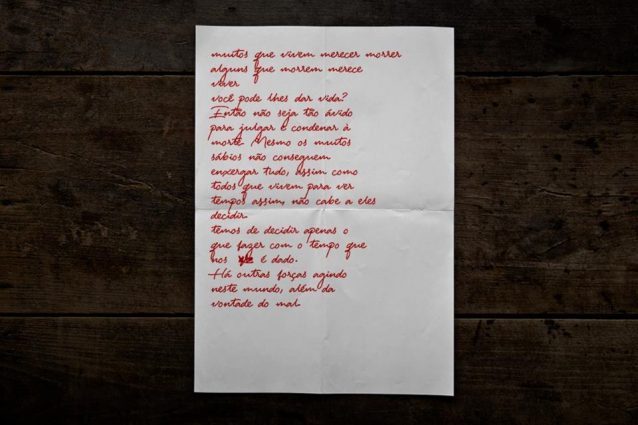 muitos que vivem merecer morrer
alguns que morrem merece
viver
você pode lhes dar vida?
Então não seja tão ávido
para julgar e condenar à
morte. Mesmo os muitos
sábios não conseguem
enxergar tudo, assim como
todos que vivem para ver
tempos assim, não cabe a eles
decidir.
temos de decidir apenas o
que fazer com o tempo que
nos é dado.
Há outras forças agindo
neste mundo, além da
vontade do mal.